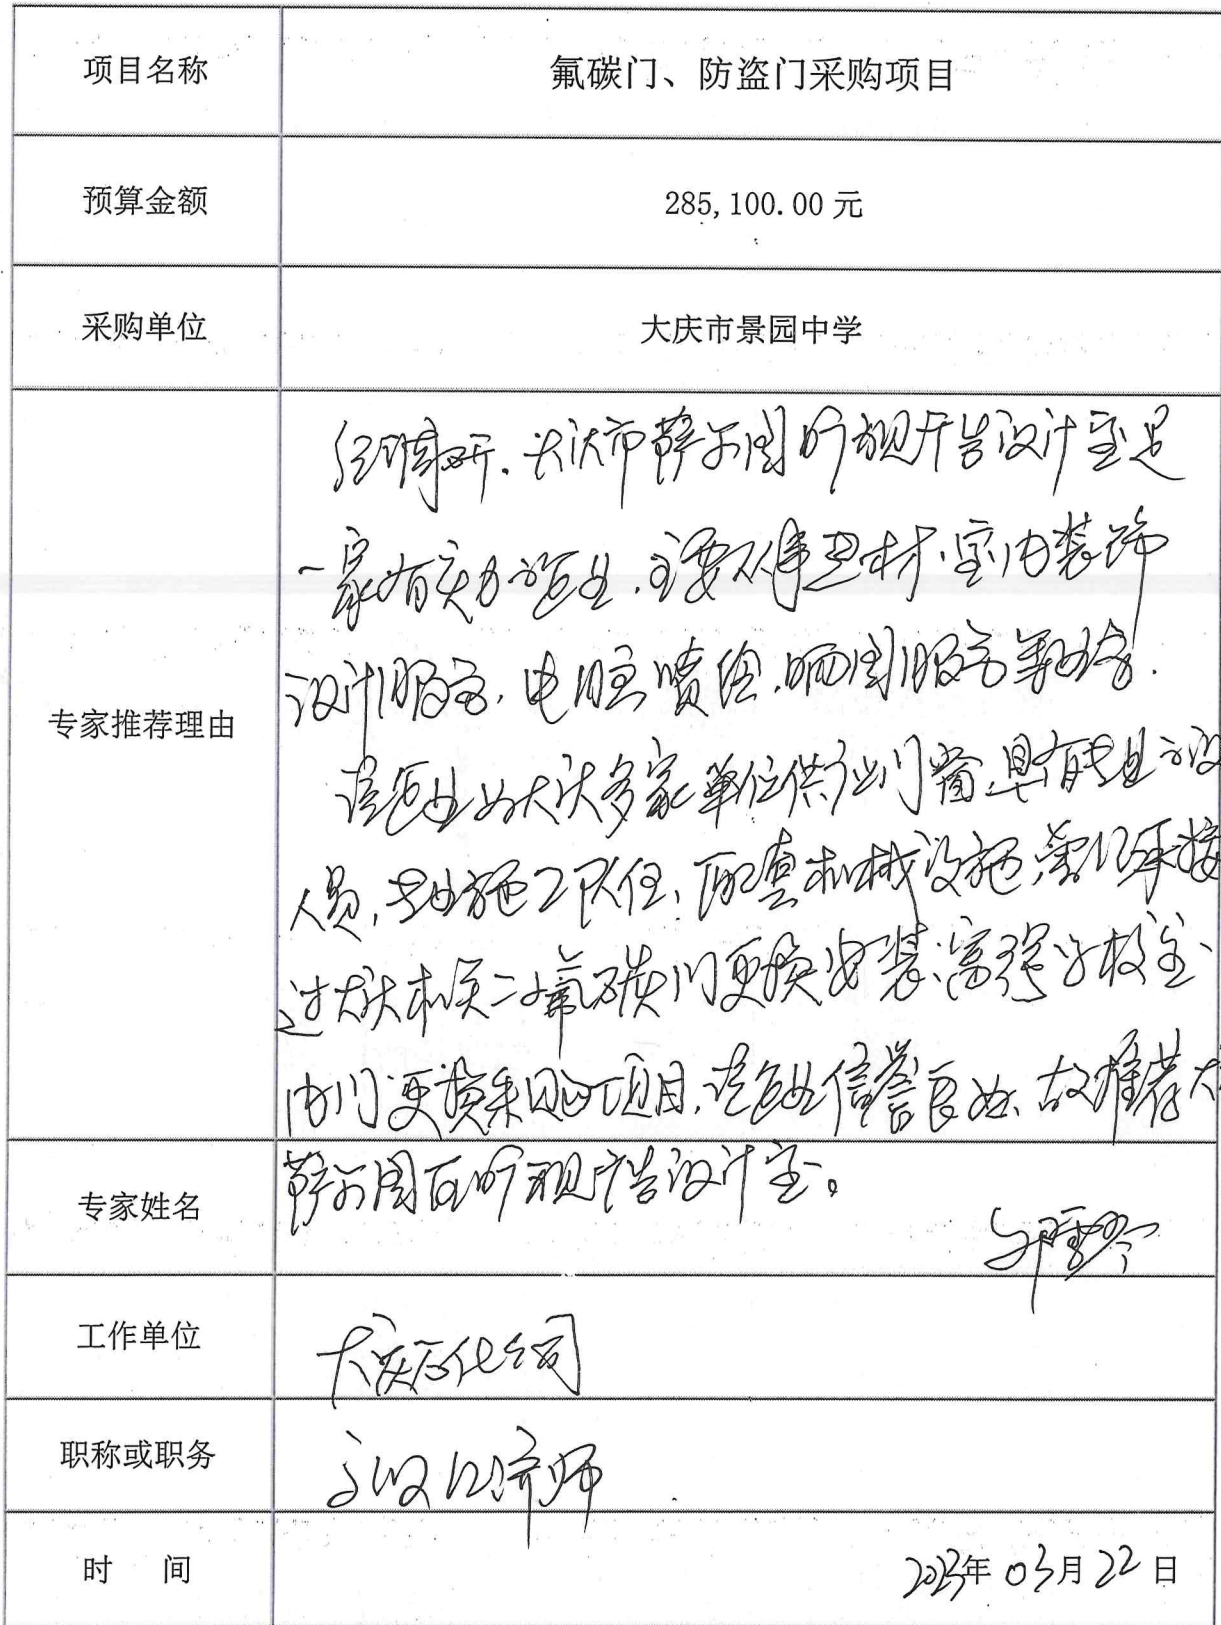 项目名称 氟碳门、防盗门采购项目
预算金额 285,100.00 元
采购单位 大庆市景园中学
专家推荐理由
经调研,大庆市萨尔图昕视广告设计室是
一家有实力的企业,主要从事建材、室内装饰
设计服务,电脑喷绘,晒图服务等业务.
该企业为大庆多家单位供应门窗,具有专业的设
人员,专业施工队伍,配套机械设施,曾经承接
过大庆机关二幼氟碳门更换安装、富强学校室
内门更换采购项目,该企业信誉良好、故推荐大
萨尔图区昕视广告设计室。
专家姓名
工作单位 大庆石化公司
职称或职务 高级经济师
时 间 2023年 03月 22 日